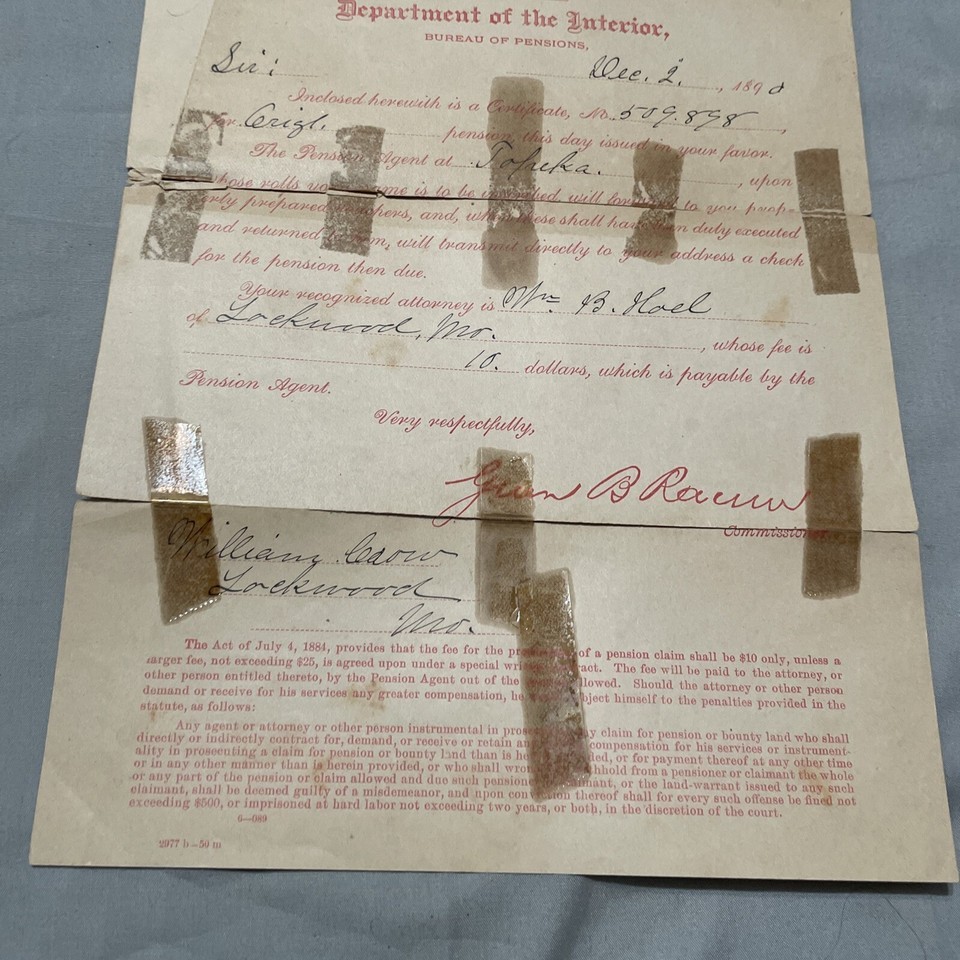 Department of the Interior,
BUREAU OF PENSIONS,
Sir: Dec. 2, 1890
Inclosed herewith is a Certificate, No. 509.898,
for Origl. pension, this day issued in your favor.
The Pension Agent at Topeka., upon
whose rolls your name is to be inscribed, will forward to you prop-
erly prepared vouchers, and, when these shall have been duly executed
and returned to him, will transmit directly to your address a check
for the pension then due.
Your recognized attorney is Wm B. Hoel
of Lockwood, Mo., whose fee is
10. dollars, which is payable by the
Pension Agent.
Very respectfully,
Green B Raum
Commissioner.
William Crow
Lockwood
Mo.
The Act of July 4, 1884, provides that the fee for the of a pension claim shall be $10 only, unless a
larger fee, not exceeding $25, is agreed upon under a special written contract. The fee will be paid to the attorney, or
other person entitled thereto, by the Pension Agent out of the allowed. Should the attorney or other person
demand or receive for his services any greater compensation, he will subject himself to the penalties provided in the
statute, as follows:
Any agent or attorney or other person instrumental in prosecuting any claim for pension or bounty land who shall
directly or indirectly contract for, demand, or receive or retain any compensation for his services or instrument-
ality in prosecuting a claim for pension or bounty land than is herein provided, or for payment thereof at any other time
or in any other manner than is herein provided, or who shall wrongfully withhold from a pensioner or claimant the whole
or any part of the pension or claim allowed and due such pensioner or claimant, or the land-warrant issued to any such
claimant, shall be deemed guilty of a misdemeanor, and upon conviction thereof shall for every such offense be fined not
exceeding $500, or imprisoned at hard labor not exceeding two years, or both, in the discretion of the court.
6—089
2977 b—50 m